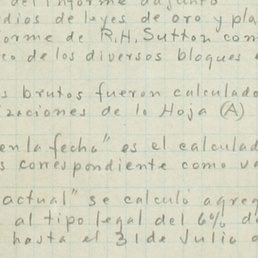 del informe adjunto
dios de leyes de oro y pla
orme de R. H. Sutton com
co de los diversos bloques
s brutos fueron calculado
zaciones de la Hoja (A)
en la fecha" es el calculad
s correspondiente como va
actual" se calculó agreg
al tipo legal del 6% d
hasta el 31 de Julio